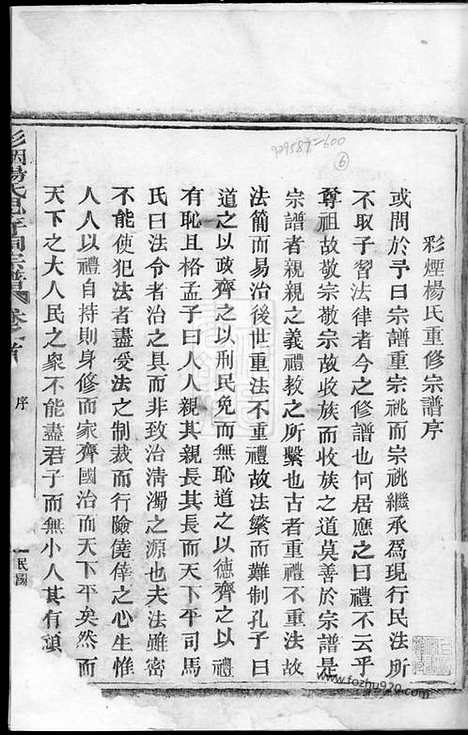 彩煙楊氏重修宗譜序
或問於予曰宗譜重宗祧而宗祧繼承爲現行民法所
不取子習法律者今之修譜也何居應之曰禮不云乎
尊祖故敬宗敬宗故收族而收族之道莫善於宗譜是
宗譜者親親之義禮教之所繫也古者重禮不重法故
法簡而易治後世重法不重禮故法縏而難制孔子曰
道之以政齊之以刑民免而無恥道之以德齊之以禮
有恥且格孟子曰人人親其親長其長而天下平司馬
氏曰法令者治之具而非致治清濁之源也夫法雖密
不能使犯法者盡受法之制裁而行險僥倖之心生惟
人人以禮自持則身修而家齊國治而天下平矣然而
天下之大人民之衆不能盡君子而無小人其有頑
楊氏
宗譜
卷首
序
民國
929587-600
6
www.fozhu920.com